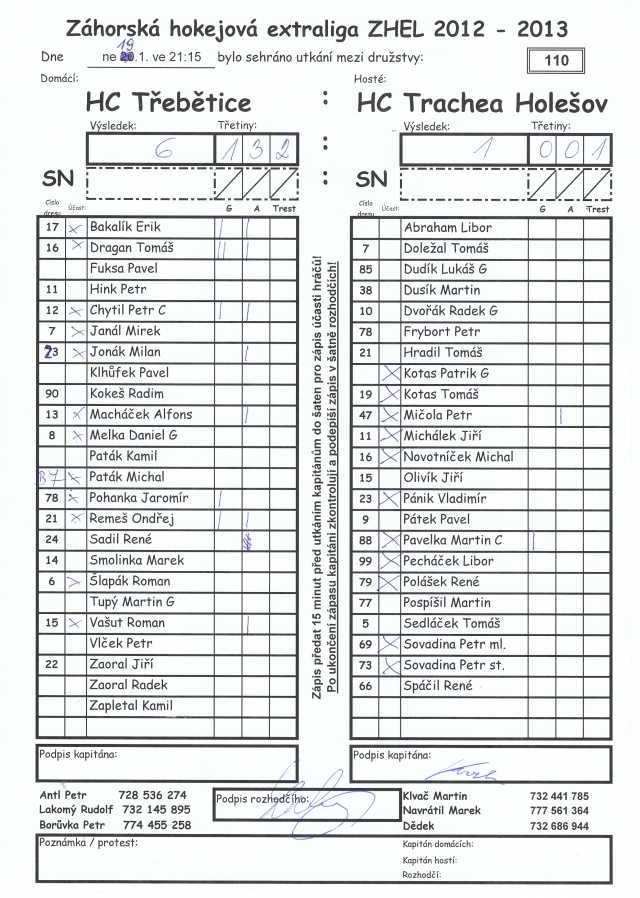 Záhorská hokejová extraliga ZHEL 2012 - 2013
Dne ne 19.1. ve 21:15 bylo sehráno utkání mezi družstvy: 110
Domácí: Hosté:
HC Třebětice : HC Trachea Holešov
Výsledek: Třetiny: : Výsledek: Třetiny:
6 1 3 2 1 0 0 1
SN : SN
Číslo dresu Účast: G A Trest Číslo dresu Účast: G A Trest
17 x Bakalík Erik | Abraham Libor
16 x Dragan Tomáš || | 7 Doležal Tomáš
Fuksa Pavel 85 Dudík Lukáš G
11 Hink Petr 38 Dusík Martin
12 x Chytil Petr C | | 10 Dvořák Radek G
7 x Janál Mirek 78 Frybort Petr
23 x Jonák Milan | 21 Hradil Tomáš
Klhůfek Pavel x Kotas Patrik G
90 Kokeš Radim 19 x Kotas Tomáš
13 x Macháček Alfons | 47 x Mičola Petr |
8 x Melka Daniel G 11 x Michálek Jiří
Paták Kamil 16 x Novotníček Michal
87 x Paták Michal 15 Olivík Jiří
78 x Pohanka Jaromír | 23 x Pánik Vladimír
21 x Remeš Ondřej | | 9 Pátek Pavel
24 Sadil René 88 x Pavelka Martin C |
14 Smolinka Marek 99 x Pecháček Libor
6 x Šlapák Roman 79 x Polášek René
Tupý Martin G 77 Pospíšil Martin
15 x Vašut Roman | 5 Sedláček Tomáš
Vlček Petr 69 x Sovadina Petr ml.
22 Zaoral Jiří 73 x Sovadina Petr st.
Zaoral Radek 66 Spáčil René
Zapletal Kamil
Zápis předat 15 minut před utkáním kapitánům do šaten pro zápis účasti hráčů!
Po ukončení zápasu kapitání zkontrolují a podepíší zápis v šatně rozhodčích!
Podpis kapitána: Podpis kapitána:
Antl Petr 728 536 274 Podpis rozhodčího: Klvač Martin 732 441 785
Lakomý Rudolf 732 145 895 Navrátil Marek 777 561 364
Borůvka Petr 774 455 258 Dědek 732 686 944
Poznámka / protest: Kapitán domácích:
Kapitán hostí:
Rozhodčí: